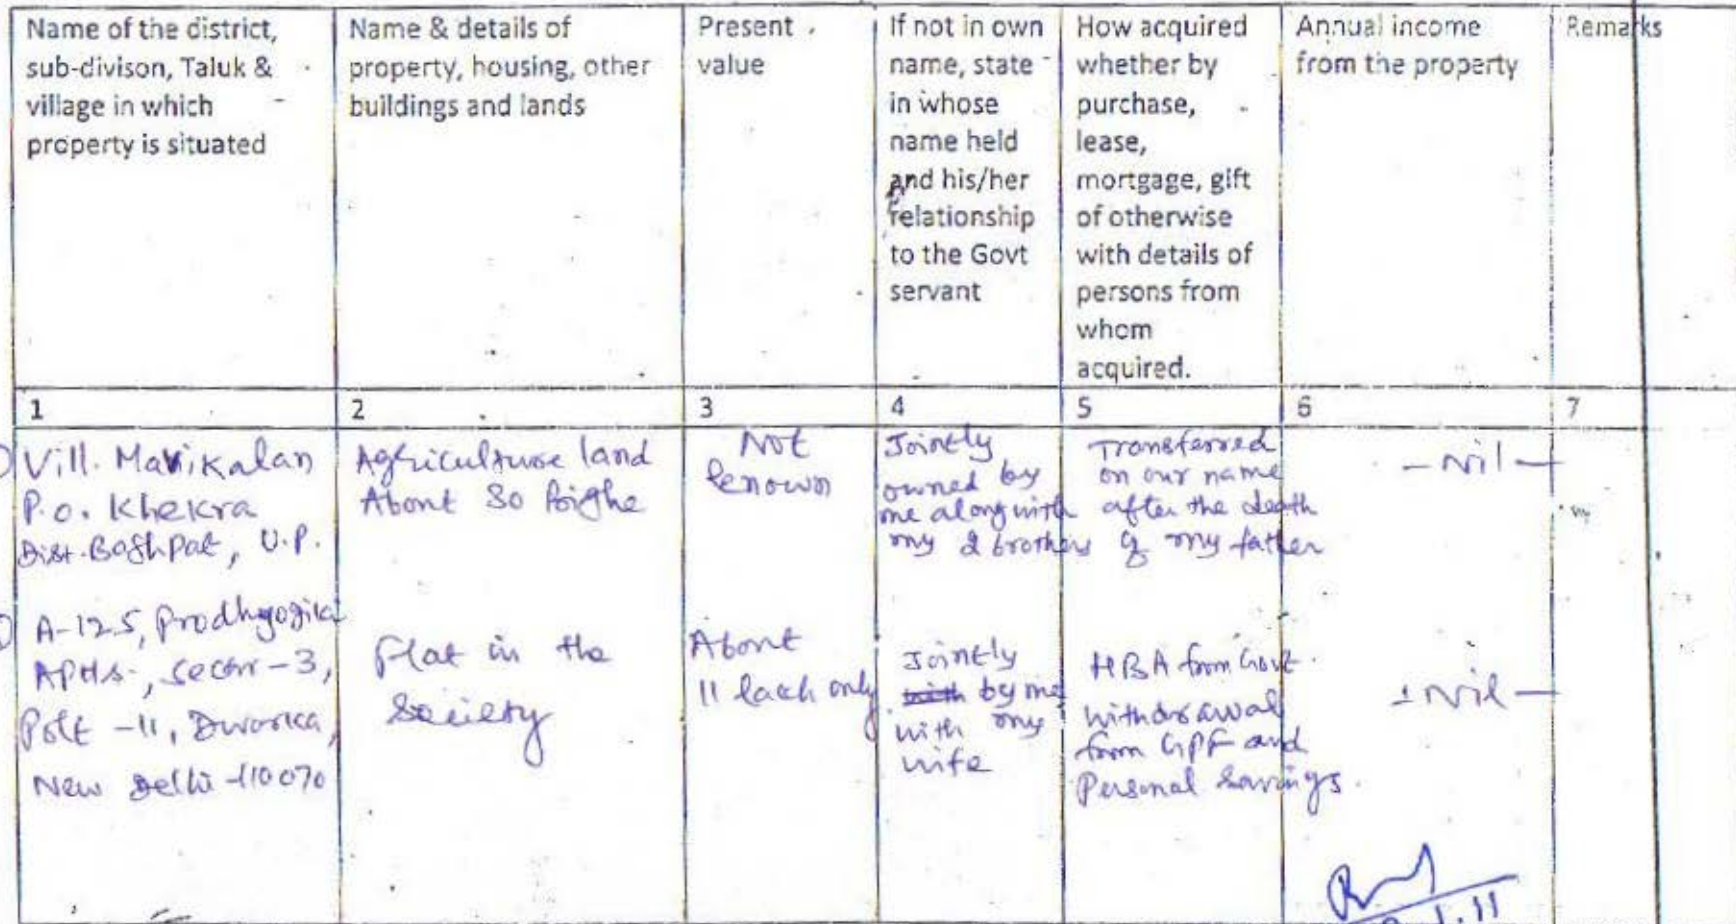 Name of the district,
sub-divison, Taluk &
village in which
property is situated
Name & details of
property, housing, other
buildings and lands
Present
value
If not in own
name, state
in whose
name held
and his/her
relationship
to the Govt
servant
How acquired
whether by
purchase,
lease,
mortgage, gift
of otherwise
with details of
persons from
whom
acquired.
Annual income
from the property
Remarks
1
2
3
4
5
6
7
Vill. Mavikalan
P.O. Khekra
Dist. Baghpat, U.P.
Agriculture land
About
Not
known
Jointly
owned by
me along with
my 2 brothers
Transferred
on our name
after the death
of my father
- Nil -
A-125, Prodhyogiki
Aptts., Sector -3,
-11, Dwarka,
New Delhi -110070
Flat in the
Society
About
11 lach only
Jointly
by me
with my
wife
HBA from Govt.
withdrawal
from GPF and
Personal Savings.
- Nil -